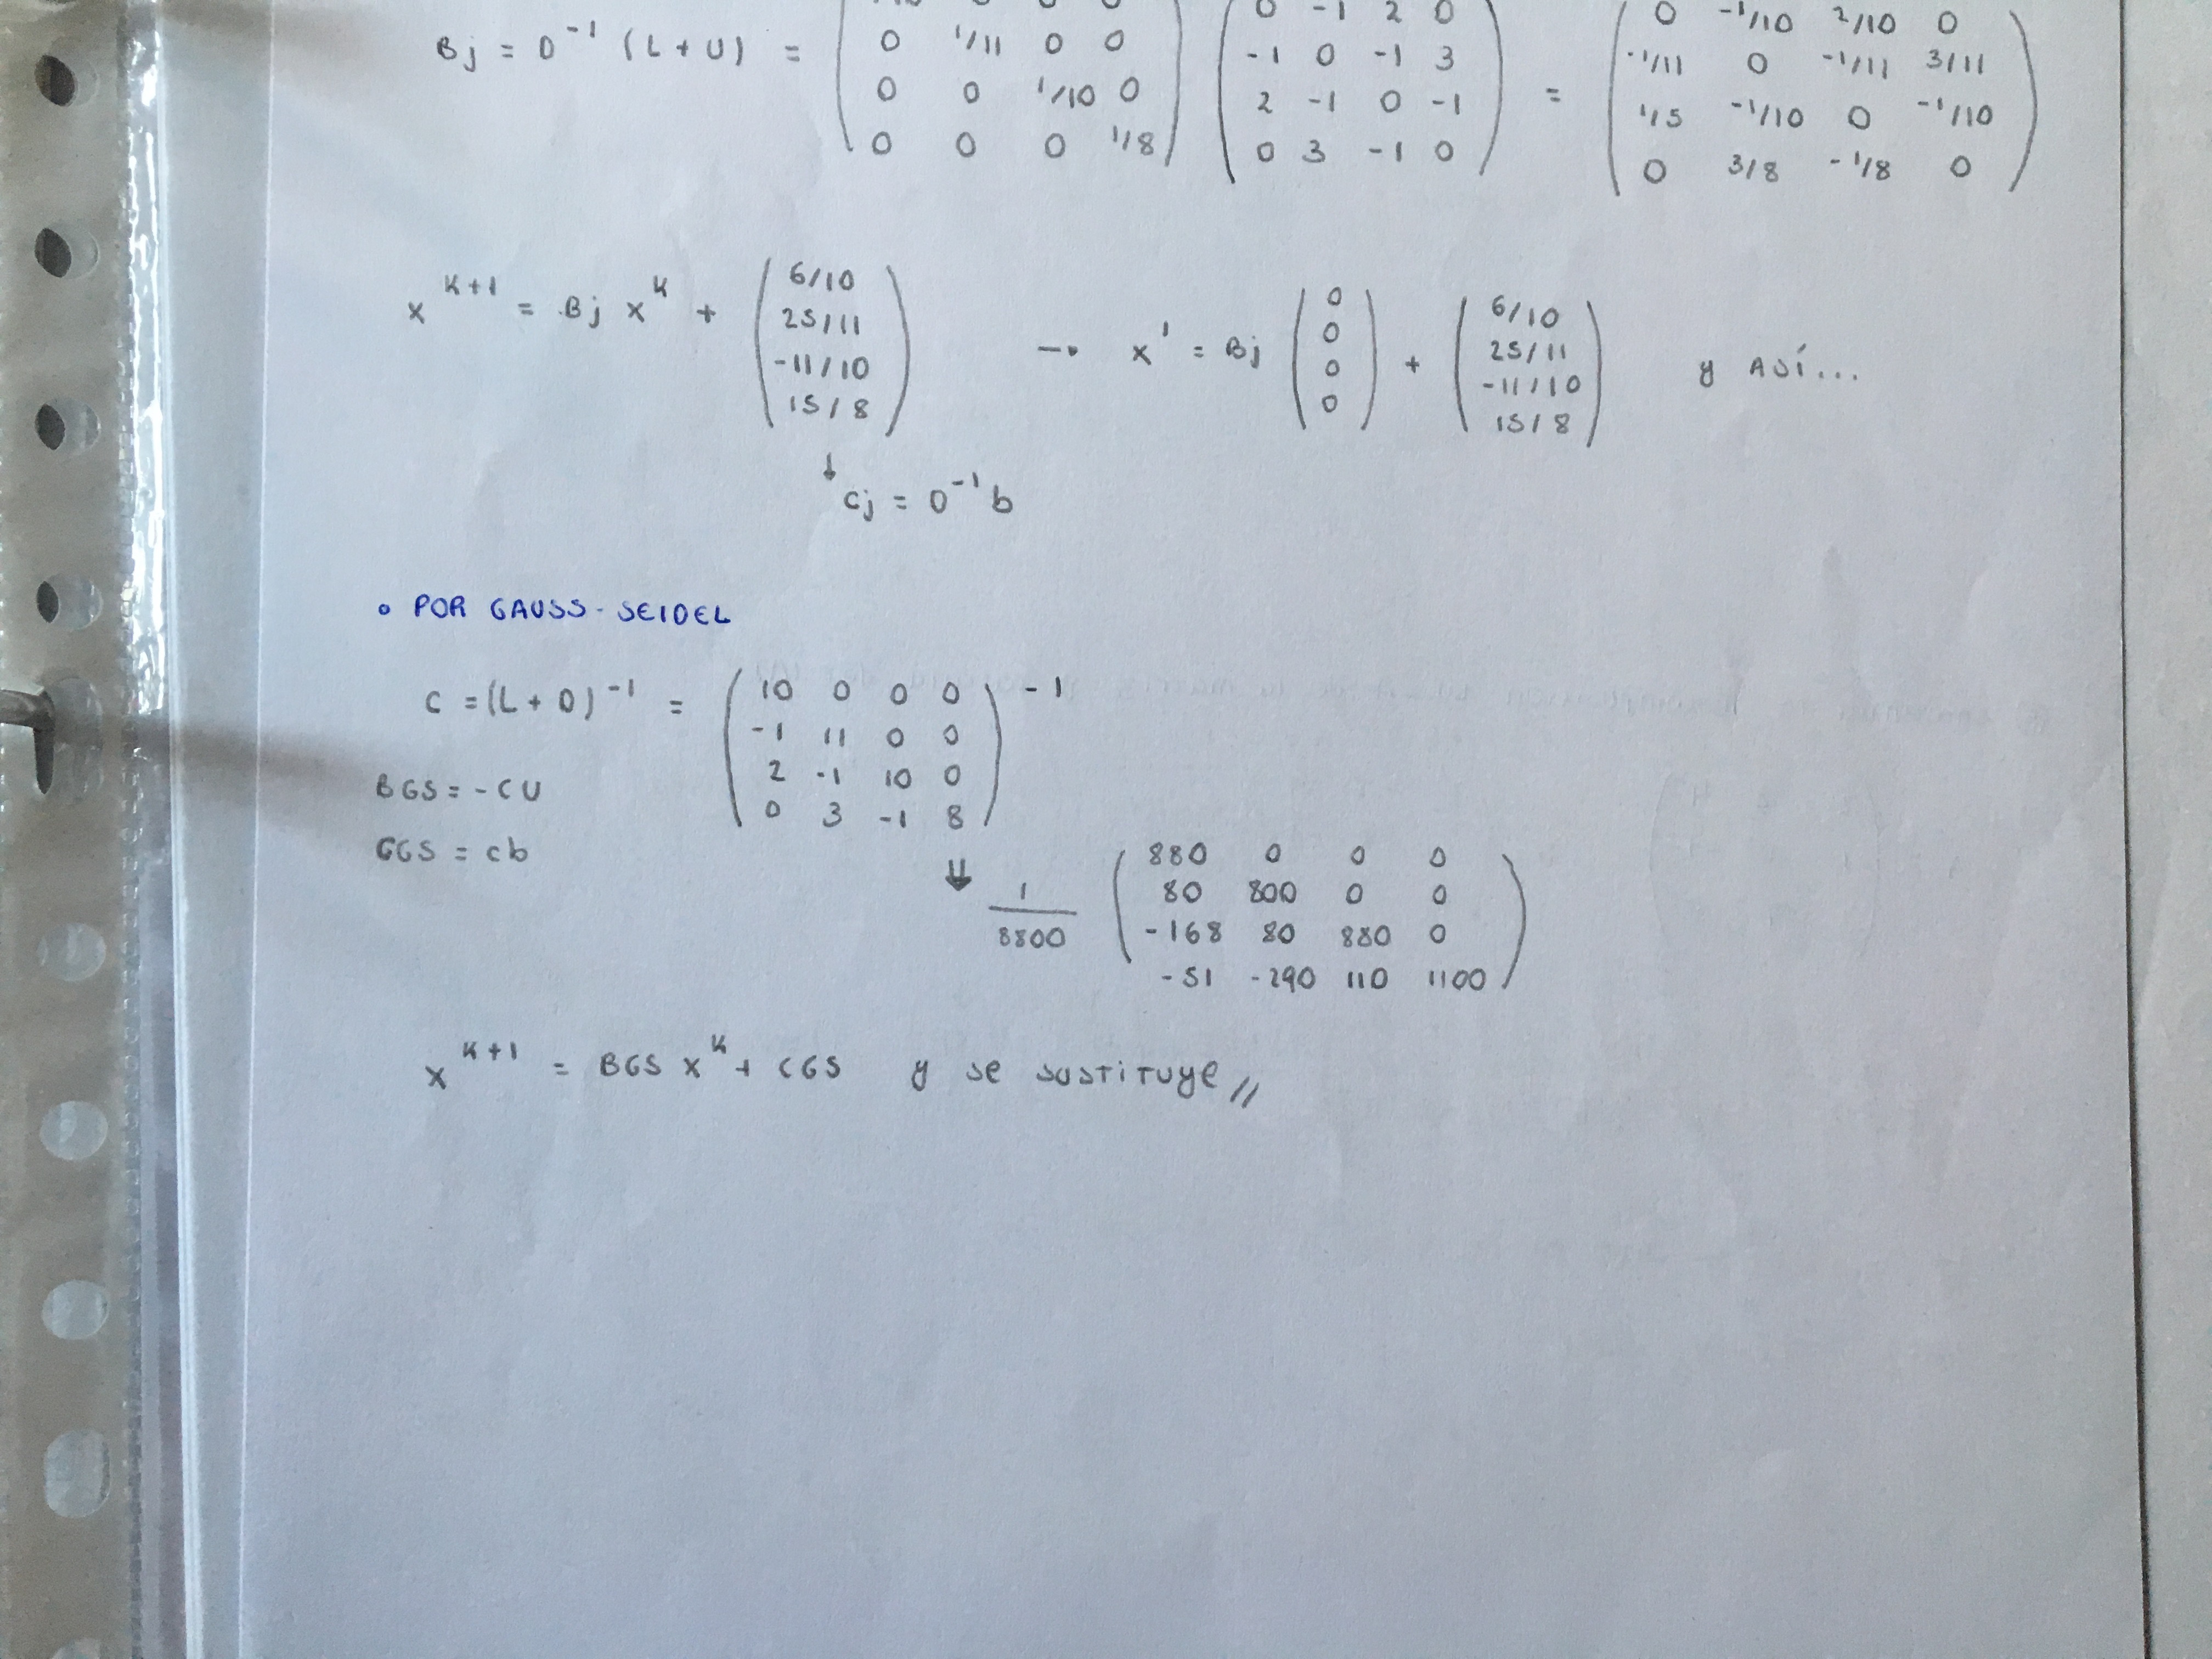 Bj = D⁻¹ (L + U) = ( 0 0 0 / 0 1/11 0 0 / 0 0 1/10 0 / 0 0 0 1/8 ) ( 0 -1 2 0 / -1 0 -1 3 / 2 -1 0 -1 / 0 3 -1 0 ) = ( 0 -1/10 2/10 0 / -1/11 0 -1/11 3/11 / 1/5 -1/10 0 -1/10 / 0 3/8 -1/8 0 )
x^(k+1) = Bj x^k + ( 6/10 / 25/11 / -11/10 / 15/8 ) → x' = Bj ( 0 / 0 / 0 / 0 ) + ( 6/10 / 25/11 / -11/10 / 15/8 ) y ASÍ...
↓ cj = D⁻¹ b
• POR GAUSS-SEIDEL
C = (L + D)⁻¹ = ( 10 0 0 0 / -1 11 0 0 / 2 -1 10 0 / 0 3 -1 8 )⁻¹
BGS = -CU
GGS = cb
⇓ 1/8800 ( 880 0 0 0 / 80 800 0 0 / -168 80 880 0 / -51 -290 110 1100 )
x^(k+1) = BGS x^k + CGS y se sustituye //